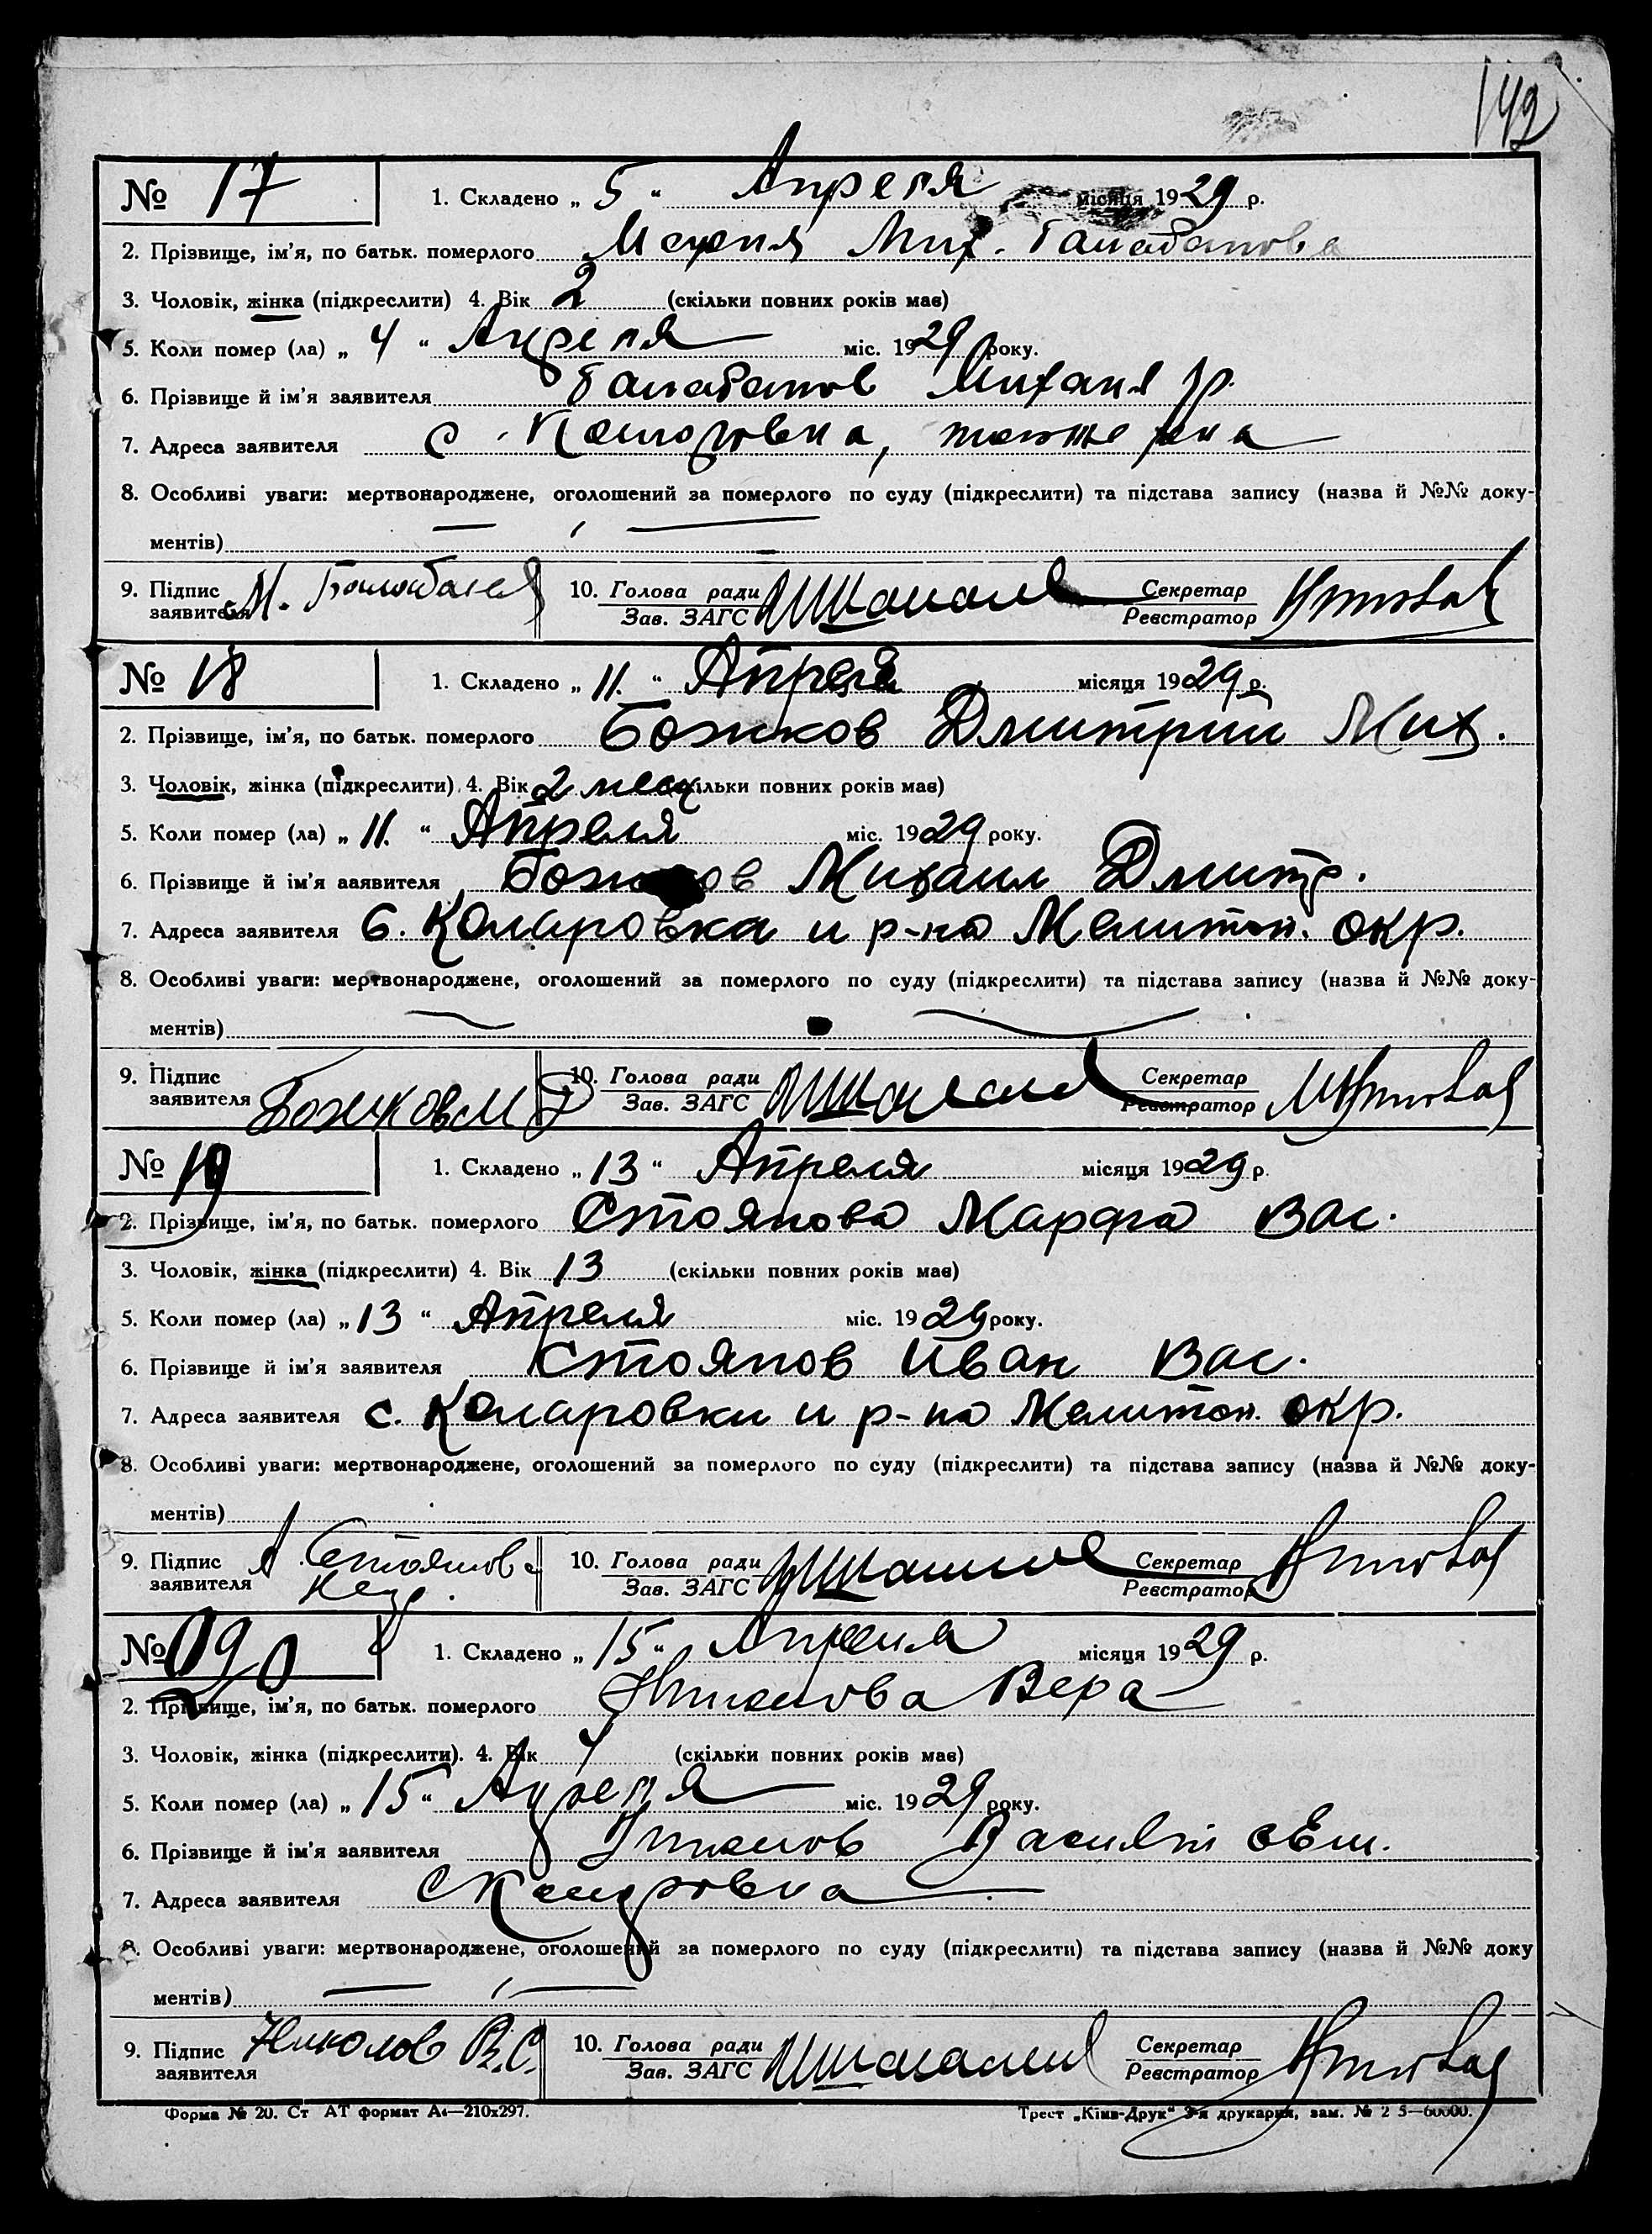 142
№ 17 1. Складено „ 5 “ Апреля місяця 1929 р.
2. Прізвище, ім'я, по батьк. померлого Мария Мих. Балабанова
3. Чоловік, жінка (підкреслити) 4. Вік 2 (скільки повних років має)
5. Коли помер (ла) „ 4 “ Апреля міс. 1929 року.
6. Прізвище й ім'я заявителя Балабанов Михаил
7. Адреса заявителя с. Коларовка, тожже р-на
8. Особливі уваги: мертвонароджене, оголошений за померлого по суду (підкреслити) та підстава запису (назва й №№ доку-
ментів)
9. Підпис заявителя М. Балабанов 10. Голова ради Зав. ЗАГС Секретар Реєстратор
№ 18 1. Складено „ 11. “ Апреля місяця 1929 р.
2. Прізвище, ім'я, по батьк. померлого Божков Дмитрий Мих.
3. Чоловік, жінка (підкреслити) 4. Вік 2 месяц (скільки повних років має)
5. Коли помер (ла) „ 11. “ Апреля міс. 1929 року.
6. Прізвище й ім'я заявителя Божков Михаил Дмитр.
7. Адреса заявителя с. Коларовка и р-на Мелитоп. окр.
8. Особливі уваги: мертвонароджене, оголошений за померлого по суду (підкреслити) та підстава запису (назва й №№ доку-
ментів)
9. Підпис заявителя Божков М Д 10. Голова ради Зав. ЗАГС Секретар Реєстратор
№ 19 1. Складено „ 13 “ Апреля місяця 1929 р.
2. Прізвище, ім'я, по батьк. померлого Стоянова Марфа Вас.
3. Чоловік, жінка (підкреслити) 4. Вік 13 (скільки повних років має)
5. Коли помер (ла) „ 13 “ Апреля міс. 1929 року.
6. Прізвище й ім'я заявителя Стоянов Иван Вас.
7. Адреса заявителя с. Коларовки и р-на Мелитоп. окр.
8. Особливі уваги: мертвонароджене, оголошений за померлого по суду (підкреслити) та підстава запису (назва й №№ доку-
ментів)
9. Підпис заявителя Стоянов 10. Голова ради Зав. ЗАГС Секретар Реєстратор
№ 20 1. Складено „ 15 “ Апреля місяця 1929 р.
2. Прізвище, ім'я, по батьк. померлого Николова Вера
3. Чоловік, жінка (підкреслити). 4. Вік 4 (скільки повних років має)
5. Коли помер (ла) „ 15 “ Апреля міс. 1929 року.
6. Прізвище й ім'я заявителя Николов Василий
7. Адреса заявителя с Коларовка
8. Особливі уваги: мертвонароджене, оголошений за померлого по суду (підкреслити) та підстава запису (назва й №№ доку
ментів)
9. Підпис заявителя Николов В.С. 10. Голова ради Зав. ЗАГС Секретар Реєстратор
Форма № 20. Ст АТ формат А4—210х297. Трест „Київ-Друк“ друкарня, зам. №